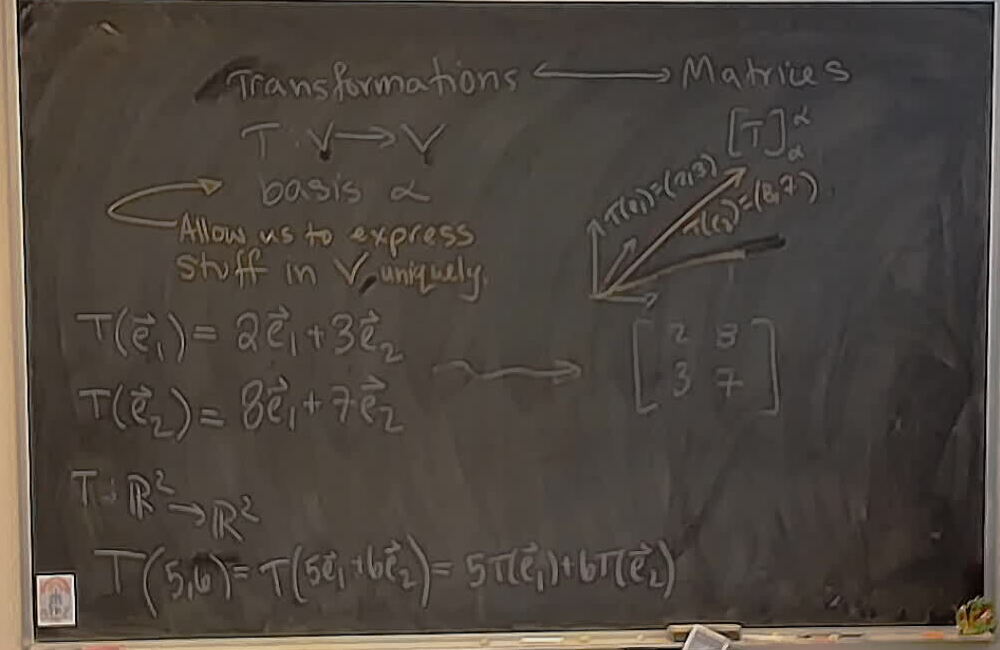 Transformations ⟷ Matrices
T: V → V
[T]_α^α
basis α
Allow us to express
stuff in V uniquely.
T(e₁)=(2,3)
T(e₂)=(8,7)
T(e⃗₁) = 2e⃗₁ + 3e⃗₂
T(e⃗₂) = 8e⃗₁ + 7e⃗₂
[2 8
3 7]
T: ℝ² → ℝ²
T(5,6) = T(5e⃗₁+6e⃗₂) = 5T(e⃗₁)+6T(e⃗₂)